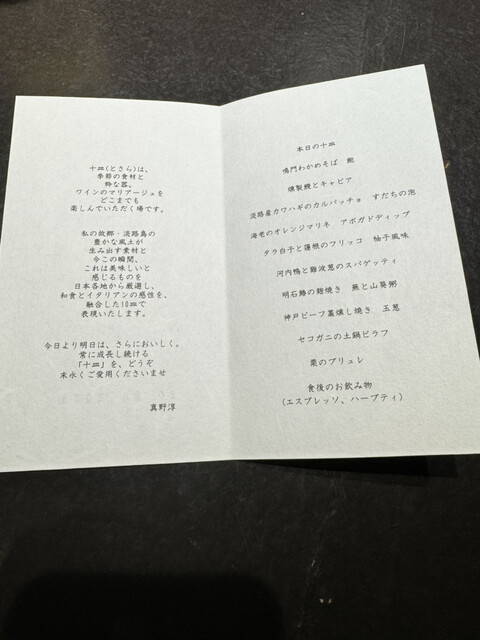 十皿(とさら)は、
季節の食材と
粋な器、
ワインのマリアージュを
どこまでも
楽しんでいただく場です。
私の故郷・淡路島の
豊かな風土が
生み出す素材と
今この瞬間、
これは美味しいと
感じるものを
日本各地から厳選し、
和食とイタリアンの感性を、
融合した10皿で
表現いたします。
今日より明日は、さらにおいしく。
常に成長し続ける
「十皿」を、どうぞ
末永くご愛用くださいませ
真野淳
本日の十皿
鳴門わかめそば 鮑
燻製鰻とキャビア
淡路産カワハギのカルパッチョ すだちの泡
海老のオレンジマリネ アボガドディップ
タラ白子と蓮根のフリッコ 柚子風味
河内鴨と難波葱のスパゲッティ
明石鰆の麹焼き 蕪と山葵粥
神戸ビーフ藁燻し焼き 玉葱
セコガニの土鍋ピラフ
栗のブリュレ
食後のお飲み物
(エスプレッソ、ハーブティ)